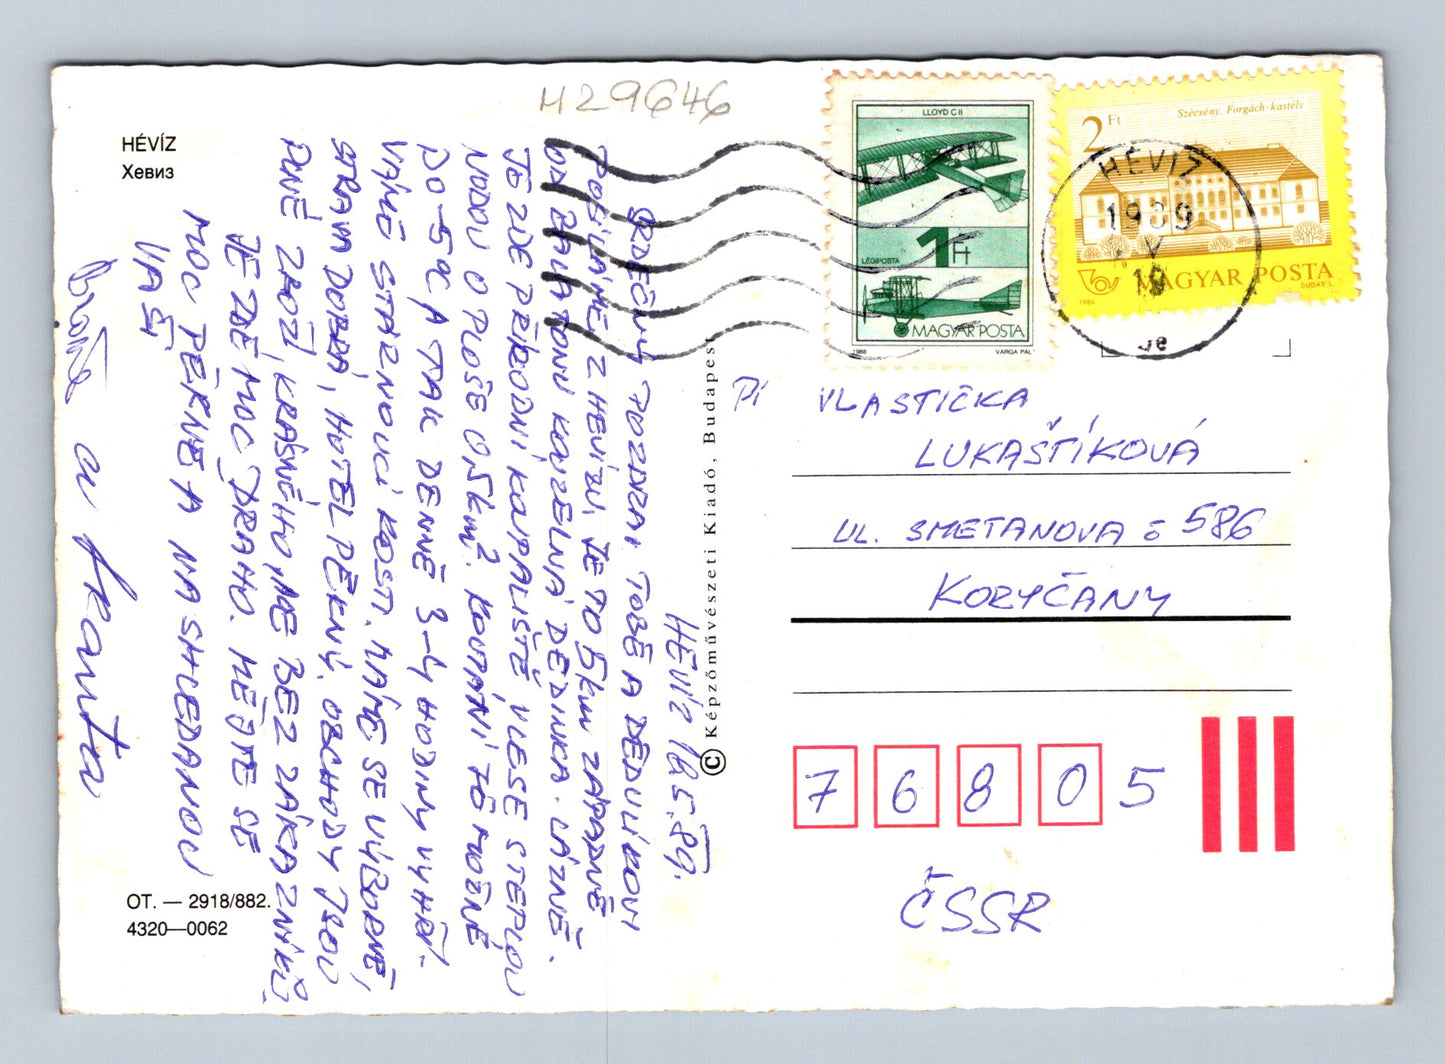 HÉVÍZ
Хевиз
H29646
LLOYD C II
LÉGIPOSTA
1 Ft
MAGYAR POSTA
1988
VARGA PÁL
Szécsény, Forgách-kastély
2 Ft
MAGYAR POSTA
1986
DUDÁS L.
HÉVÍZ
1989
V
19
HÉVÍZ 18.5.89.
SRDEČNÝ POZDRAV TOBĚ A DĚDULÍKOVI
POSÍLÁME Z HEVÍZU, JE TO 5km ZÁPADNĚ
OD BALATONU KOUZELNÁ DĚDINKA-LÁZNĚ.
JE ZDE PŘÍRODNÍ KOUPALIŠTĚ V LESE S TEPLOU
VODOU O PLOŠE 0,5km². KOUPÁNÍ JE MOŽNÉ
DO -5°C A TAK DENNĚ 3-4 HODINY VYHŘÍ-
VÁME STÁRNOUCÍ KOSTI. MÁME SE VÝBORNĚ,
STRAVA DOBRÁ, HOTEL PĚKNÝ, OBCHODY JSOU
PLNÉ ZBOŽÍ, KRÁSNÉHO, NE BEZ ZÁKAZNÍKŮ.
JE ZDE MOC DRAHO. MĚJTE SE
MOC PĚKNĚ A NA SHLEDANOU
VAŠI
a Franta
© Képzőművészeti Kiadó, Budapest
Pí VLASTIČKA
LUKAŠTÍKOVÁ
UL. SMETANOVA č 586
KORYČANY
7 6 8 0 5
ČSSR
OT. — 2918/882.
4320—0062